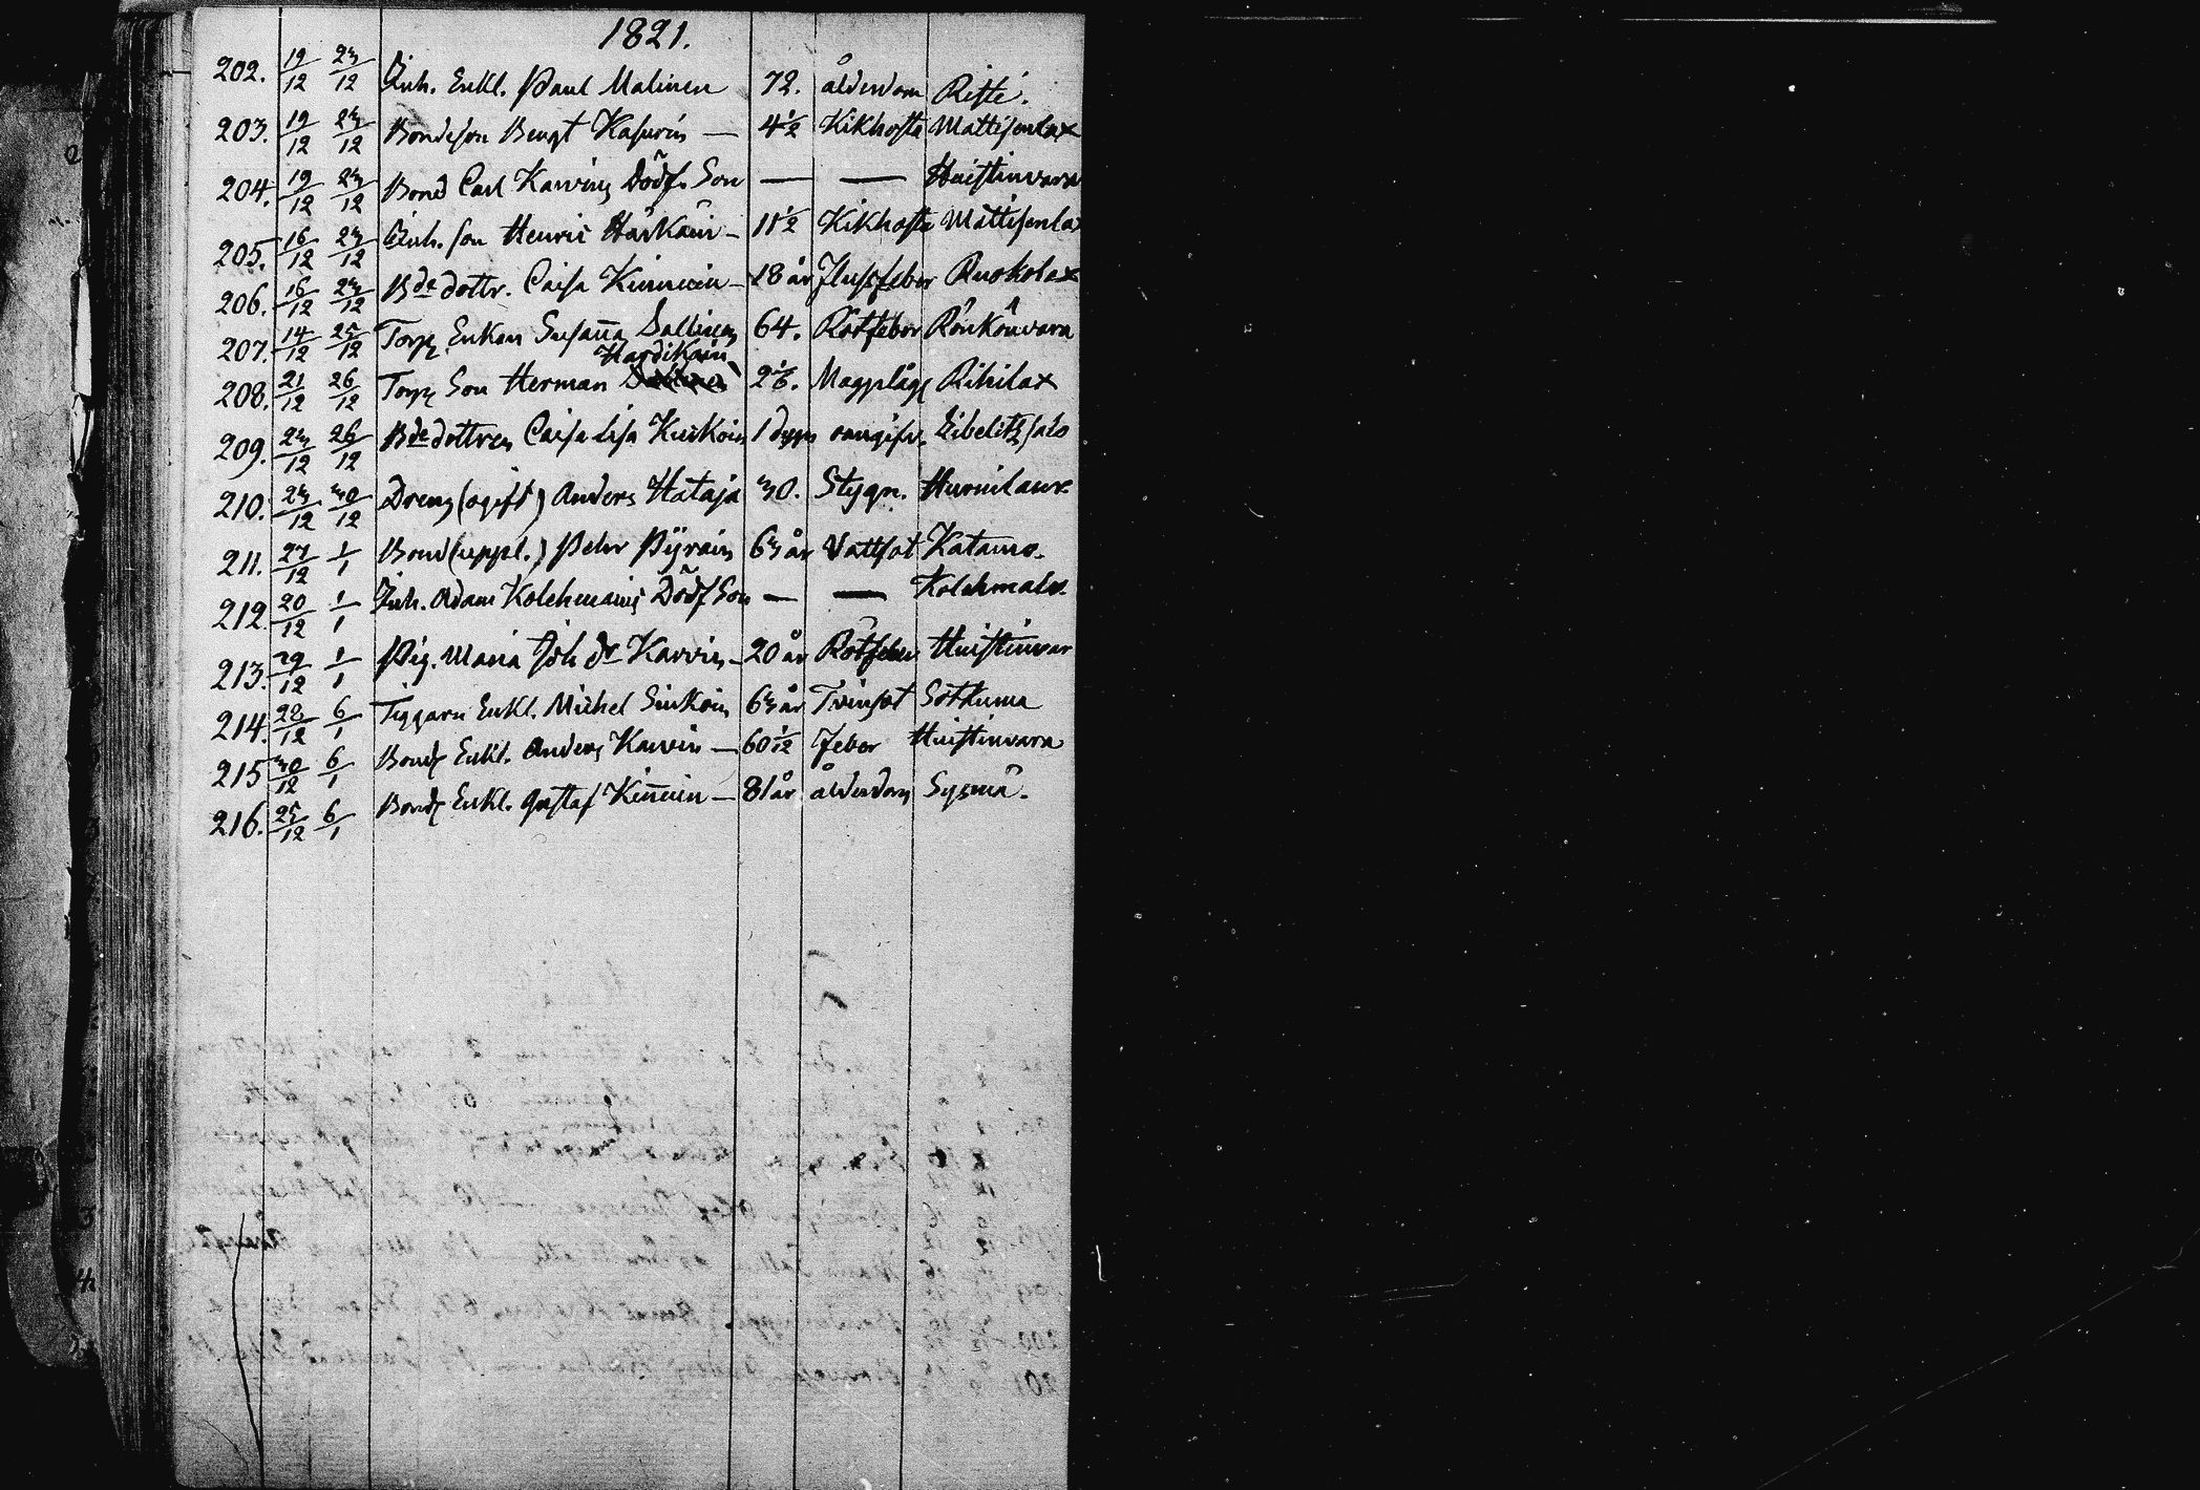 1821.
202. 19/12 23/12 Inh. Enkl. Paul Malinen 72. ålderdom Riste.
203. 19/12 23/12 Bondeson Bengt Kasurin — 4 1/2 Kikhosta Mattisenlax
204. 19/12 23/12 Bond Carl Karvins Dödf. Son — — Huistinvara
205. 16/12 23/12 Inh. son Henric Härkäin — 11 1/2 Kikhosta Mattisenlax
206. 16/12 23/12 Bde dottr. Caisa Kinnuin — 18 år Flussfeber Ruokolax
207. 14/12 25/12 Torp. Enkan Susanna Sallinen 64. Rötfeber Rönkönvara
Hardikain
208. 21/12 26/12 Torp Son Herman 2 1/6. Magplåg Rihilax
209. 23/12 26/12 Bde dottren Caisa Lisa Kuikoin 1 dygn oangifv. Libelitz salo
210. 23/12 30/12 Dreng (ogift) Anders Hataja 30. Stygn. Hurnilawx
211. 27/12 1/1 Bond (uppl.) Pehr Pyrain 63 år Vattsot Katamo.
212. 20/12 1/1 Inh. Adam Kolehmains Dödf Son — — Kolehmalx.
213. 29/12 1/1 Pig. Maria Joh dr Karvin — 20 år Rötfeber Huistinvar
214. 28/12 6/1 Tiggaren Enkl. Michel Sinkoin 63 år Tvinsot Sotkuma
215 30/12 6/1 Bond Enkl. Anders Karvin — 60 1/12 Feber Huistinvara
216. 25/12 6/1 Bond Enkl. Gustaf Kinnuin — 81 år ålderdom Sysmä.